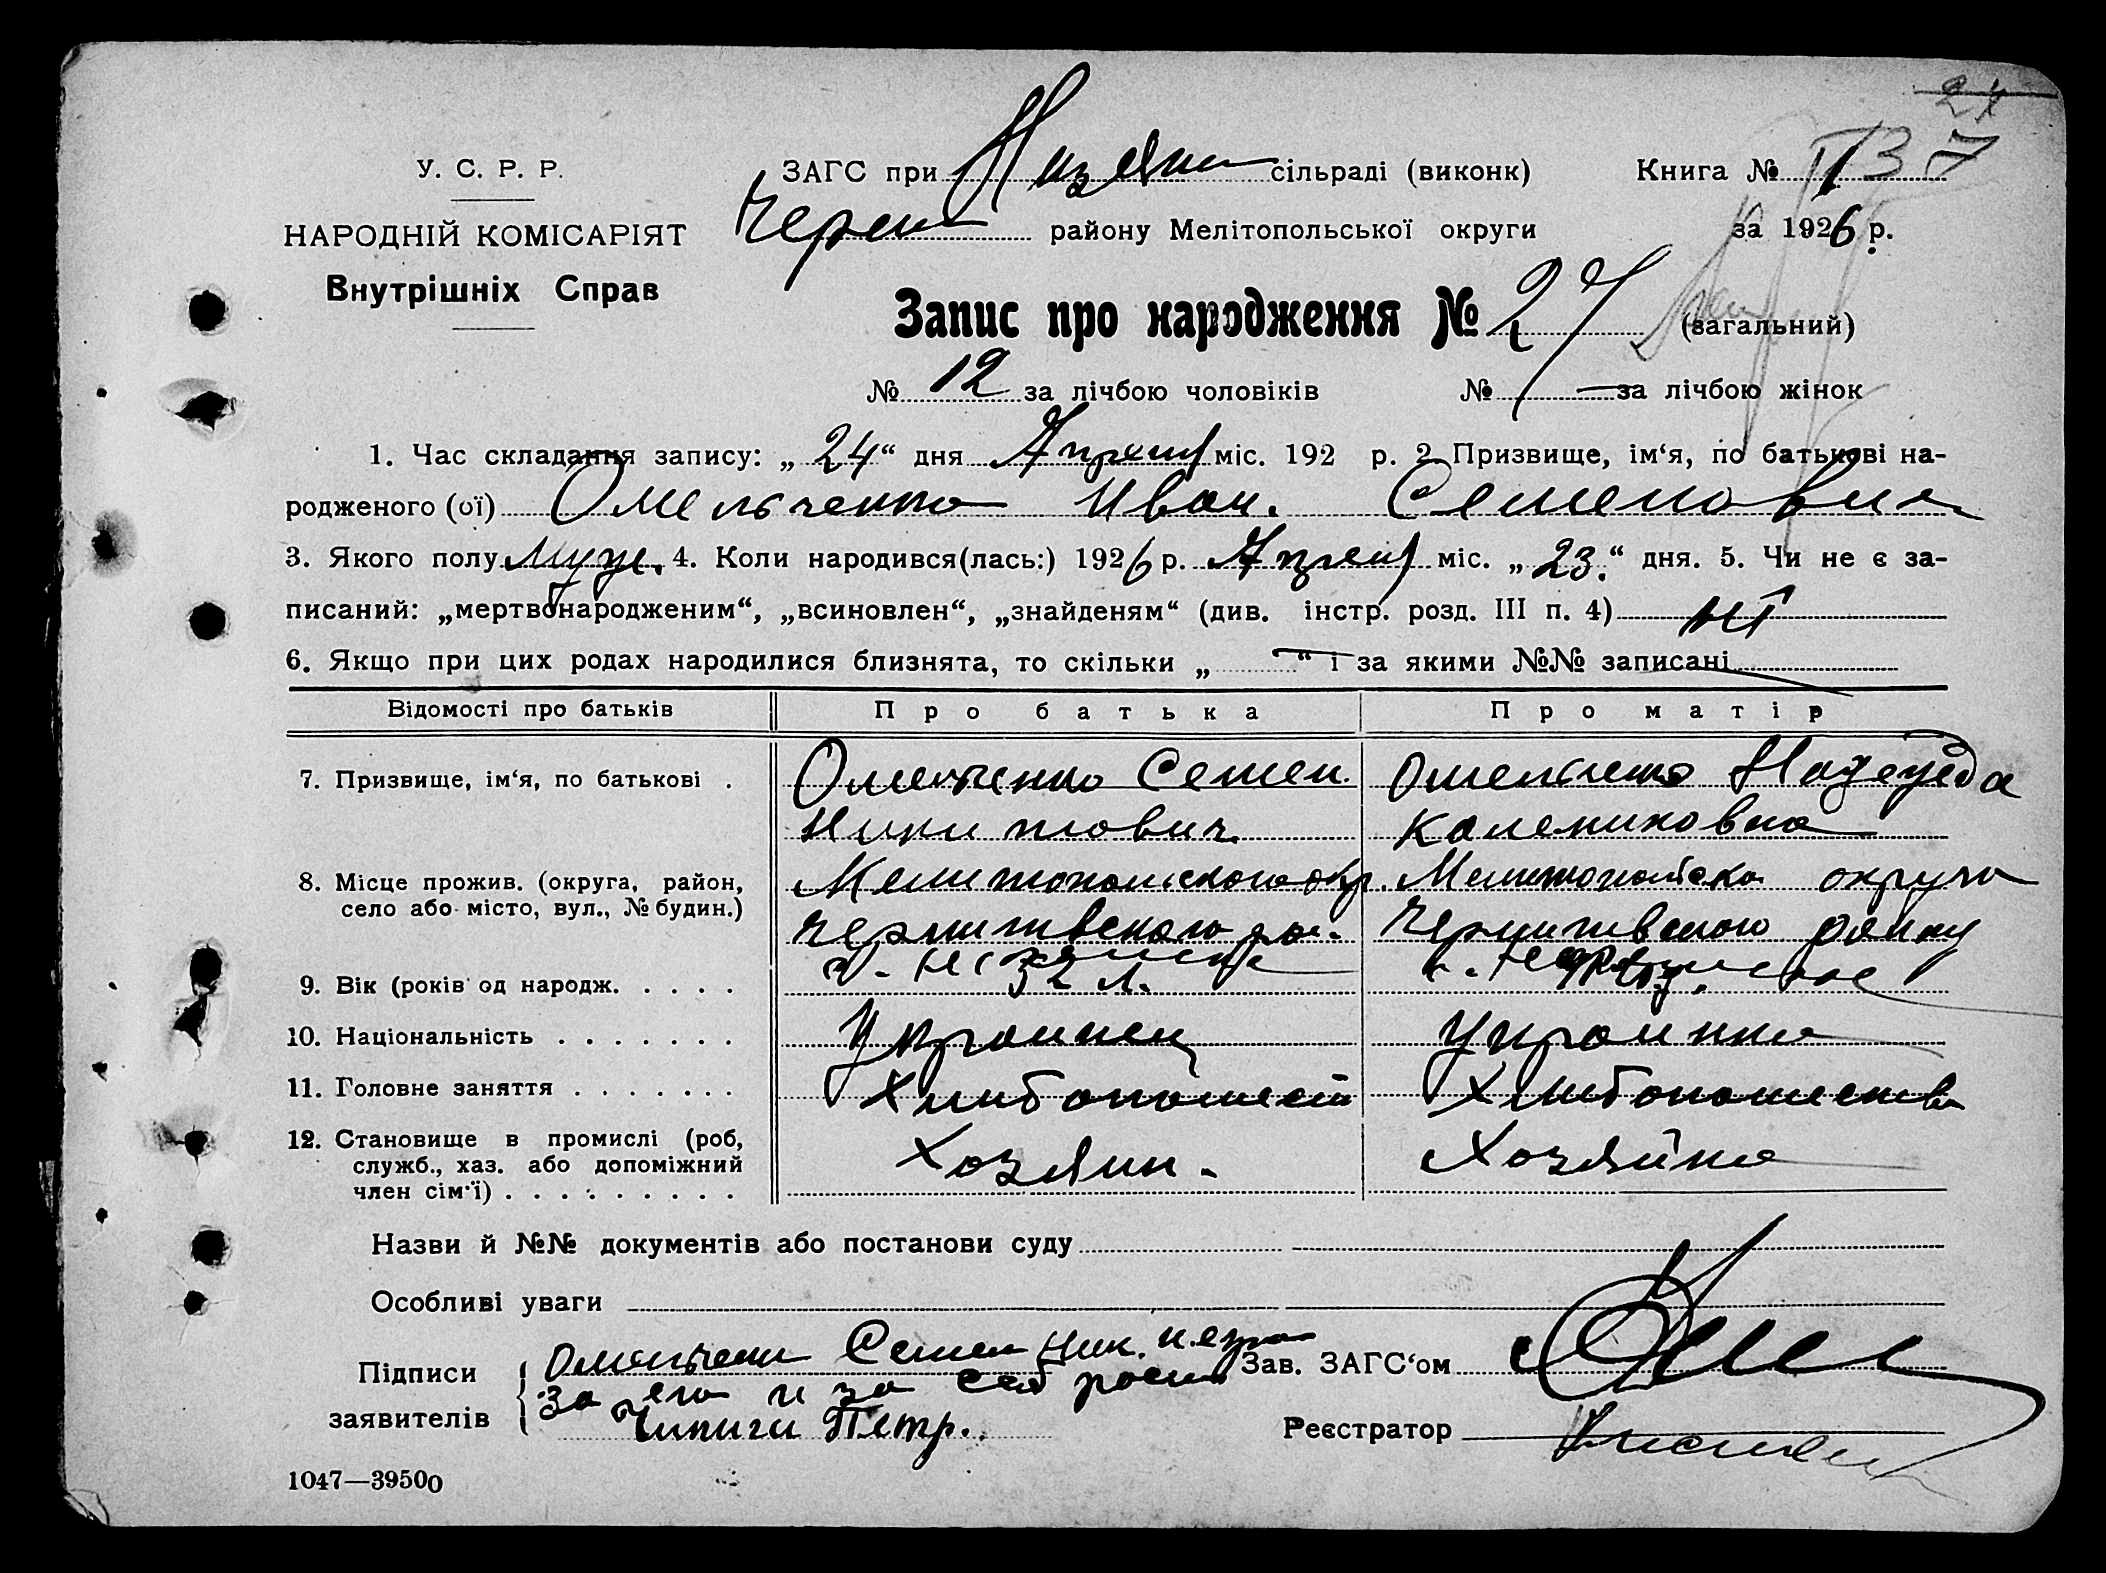 27
137
У. С. Р. Р.
НАРОДНІЙ КОМІСАРІЯТ
Внутрішніх Справ
ЗАГС при Низяни сільраді (виконк)
Черни району Мелітопольської округи
Книга № 1
за 1926 р.
Запис про народження № 27 (загальний)
№ 12 за лічбою чоловіків № — за лічбою жінок
1. Час складання запису: „24“ дня Апреля міс. 192 р. 2. Призвище, ім‘я, по батькові на-
родженого (ої) Омельченко Иван. Семенович
3. Якого полу муж. 4. Коли народився(лась:) 1926 р. Апреля міс. „23.“ дня. 5. Чи не є за-
писаний: „мертвонародженим“, „всиновлен“, „знайденям“ (див. інстр. розд. III п. 4) ні
6. Якщо при цих родах народилися близнята, то скільки „ — “ і за якими №№ записані
Відомості про батьків Про батька Про матір
7. Призвище, ім‘я, по батькові . Омельченко Семен. Омельченко Надежда
Никитович Калениковна
8. Місце прожив. (округа, район, село або місто, вул., № будин.) Мелитопольского окр. Мелитопольска округа
Черниговского ра. Черниговского району
9. Вік (років од народж. . . . . 32 л.
10. Національність . . . . . . . Украинец Украинка
11. Головне заняття . . . . . . . Хлибопашест Хлибопашество
12. Становище в промислі (роб, служб., хаз. або допоміжний член сім‘ї) . . . . . . . . . Хозяин. Хозяйка
Назви й №№ документів або постанови суду
Особливі уваги
Підписи заявителів Омельченко Семен Ник. негра
за его и за себ росп
Чипиги Петр.
Зав. ЗАГС‘ом
Реєстратор
1047—39500